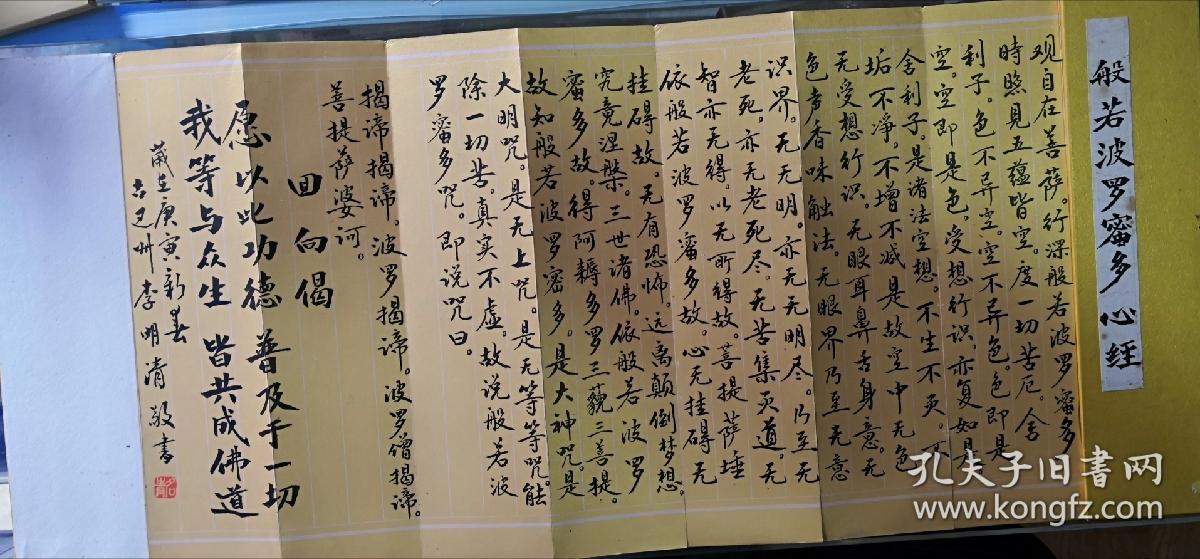 般若波罗蜜多心经
观自在菩萨。行深般若波罗蜜多
时照见五蕴皆空。度一切苦厄。舍
利子。色不异空。空不异色。色即是
空。空即是色。受想行识。亦复如是
舍利子。是诸法空想。不生不灭。不
垢不净。不增不减是故空中无色
无受想行识。无眼耳鼻舌身意。无
色声香味触法。无眼界乃至无意
识界。无无明。亦无无明尽。乃至无
老死。亦无老死尽。无苦集灭道。无
智亦无得。以无所得故。菩提萨埵
依般若波罗蜜多故。心无挂碍无
挂碍故。无有恐怖。远离颠倒梦想。
究竟涅槃。三世诸佛。依般若波罗
蜜多故。得阿耨多罗三藐三菩提。
故知般若波罗密多。是大神咒。是
大明咒。是无上咒。是无等等咒。能
除一切苦。真实不虚。故说般若波
罗蜜多咒。即说咒曰。
揭谛揭谛。波罗揭谛。波罗僧揭谛。
菩提萨婆诃。
回向偈
愿以此功德 普及于一切
我等与众生 皆共成佛道
岁在庚寅新春
古巴州李明清敬书
孔夫子旧书网
www.kongfz.com